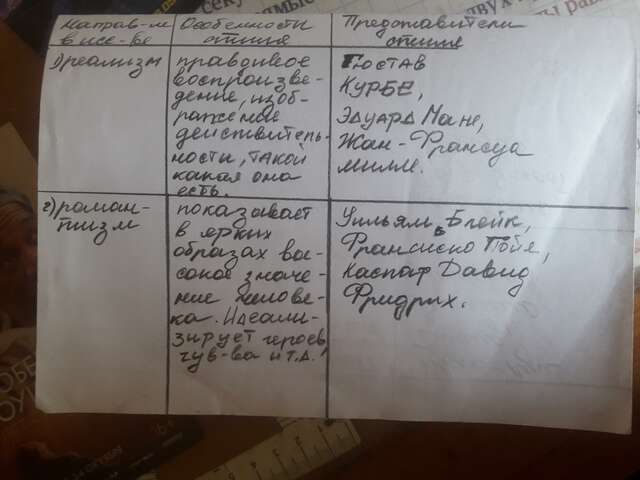 Направ-я Особенности Представители
в иск-ве стиля стиля
1) реализм
правдивое
воспроизве-
дение, изоб-
ражение
действитель-
ности, такой
какая она
есть.
Гюстав
КУРБЕ,
Эдуард Мане,
Жан-Франсуа
Милле.
2) роман-
тизм
показывает
в ярких
образах вы-
сокое значе-
ние челове-
ка. Идеали-
зирует героев
чув-ва и т.д.!
Уильям Блейк,
Франсиско Гойя,
Каспар Давид
Фридрих.